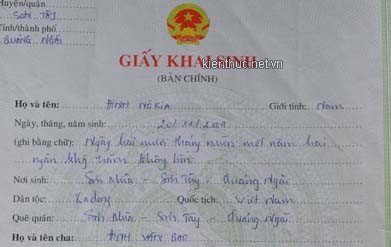 Huyện/quận
SƠN TÂY
Tỉnh/thành phố
QUẢNG NGÃI
GIẤY KHAI SINH
kienthuc.net.vn
(BẢN CHÍNH)
Họ và tên: ĐINH NÔ KIA Giới tính: Nam
Ngày, tháng, năm sinh: 20/11/2009
(ghi bằng chữ): Ngày hai mươi tháng mười một năm hai
ngàn không trăm không chín
Nơi sinh: Sơn - Sơn Tây - Quảng Ngãi
Dân tộc: Kadong Quốc tịch: Việt Nam
Quê quán: Sơn - Sơn Tây - Quảng Ngãi
Họ và tên cha: ĐINH VĂN